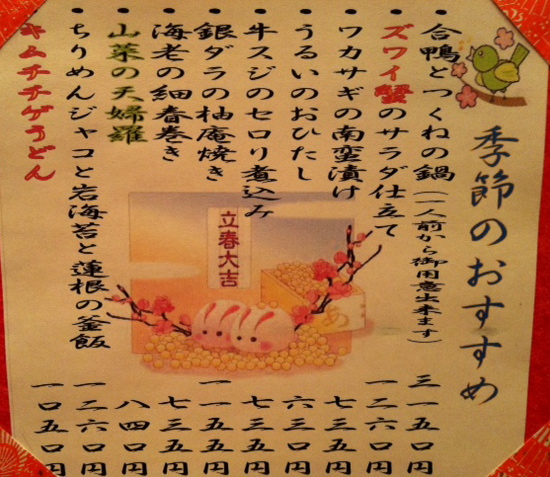 季節のおすすめ
• 合鴨とつくねの鍋(一人前から御用意出来ます) 三一五〇円
• ズワイ蟹のサラダ仕立て 一二六〇円
• ワカサギの南蛮漬け 七三五円
• うるいのおひたし 六三〇円
• 牛スジのセロリ煮込み 七三五円
• 銀ダラの柚庵焼き 一一五五円
• 海老の細春巻き 七三五円
• 山菜の天婦羅 八四〇円
• ちりめんジャコと岩海苔と蓮根の釜飯 一二六〇円
• キムチチゲうどん 一〇五〇円
立春大吉